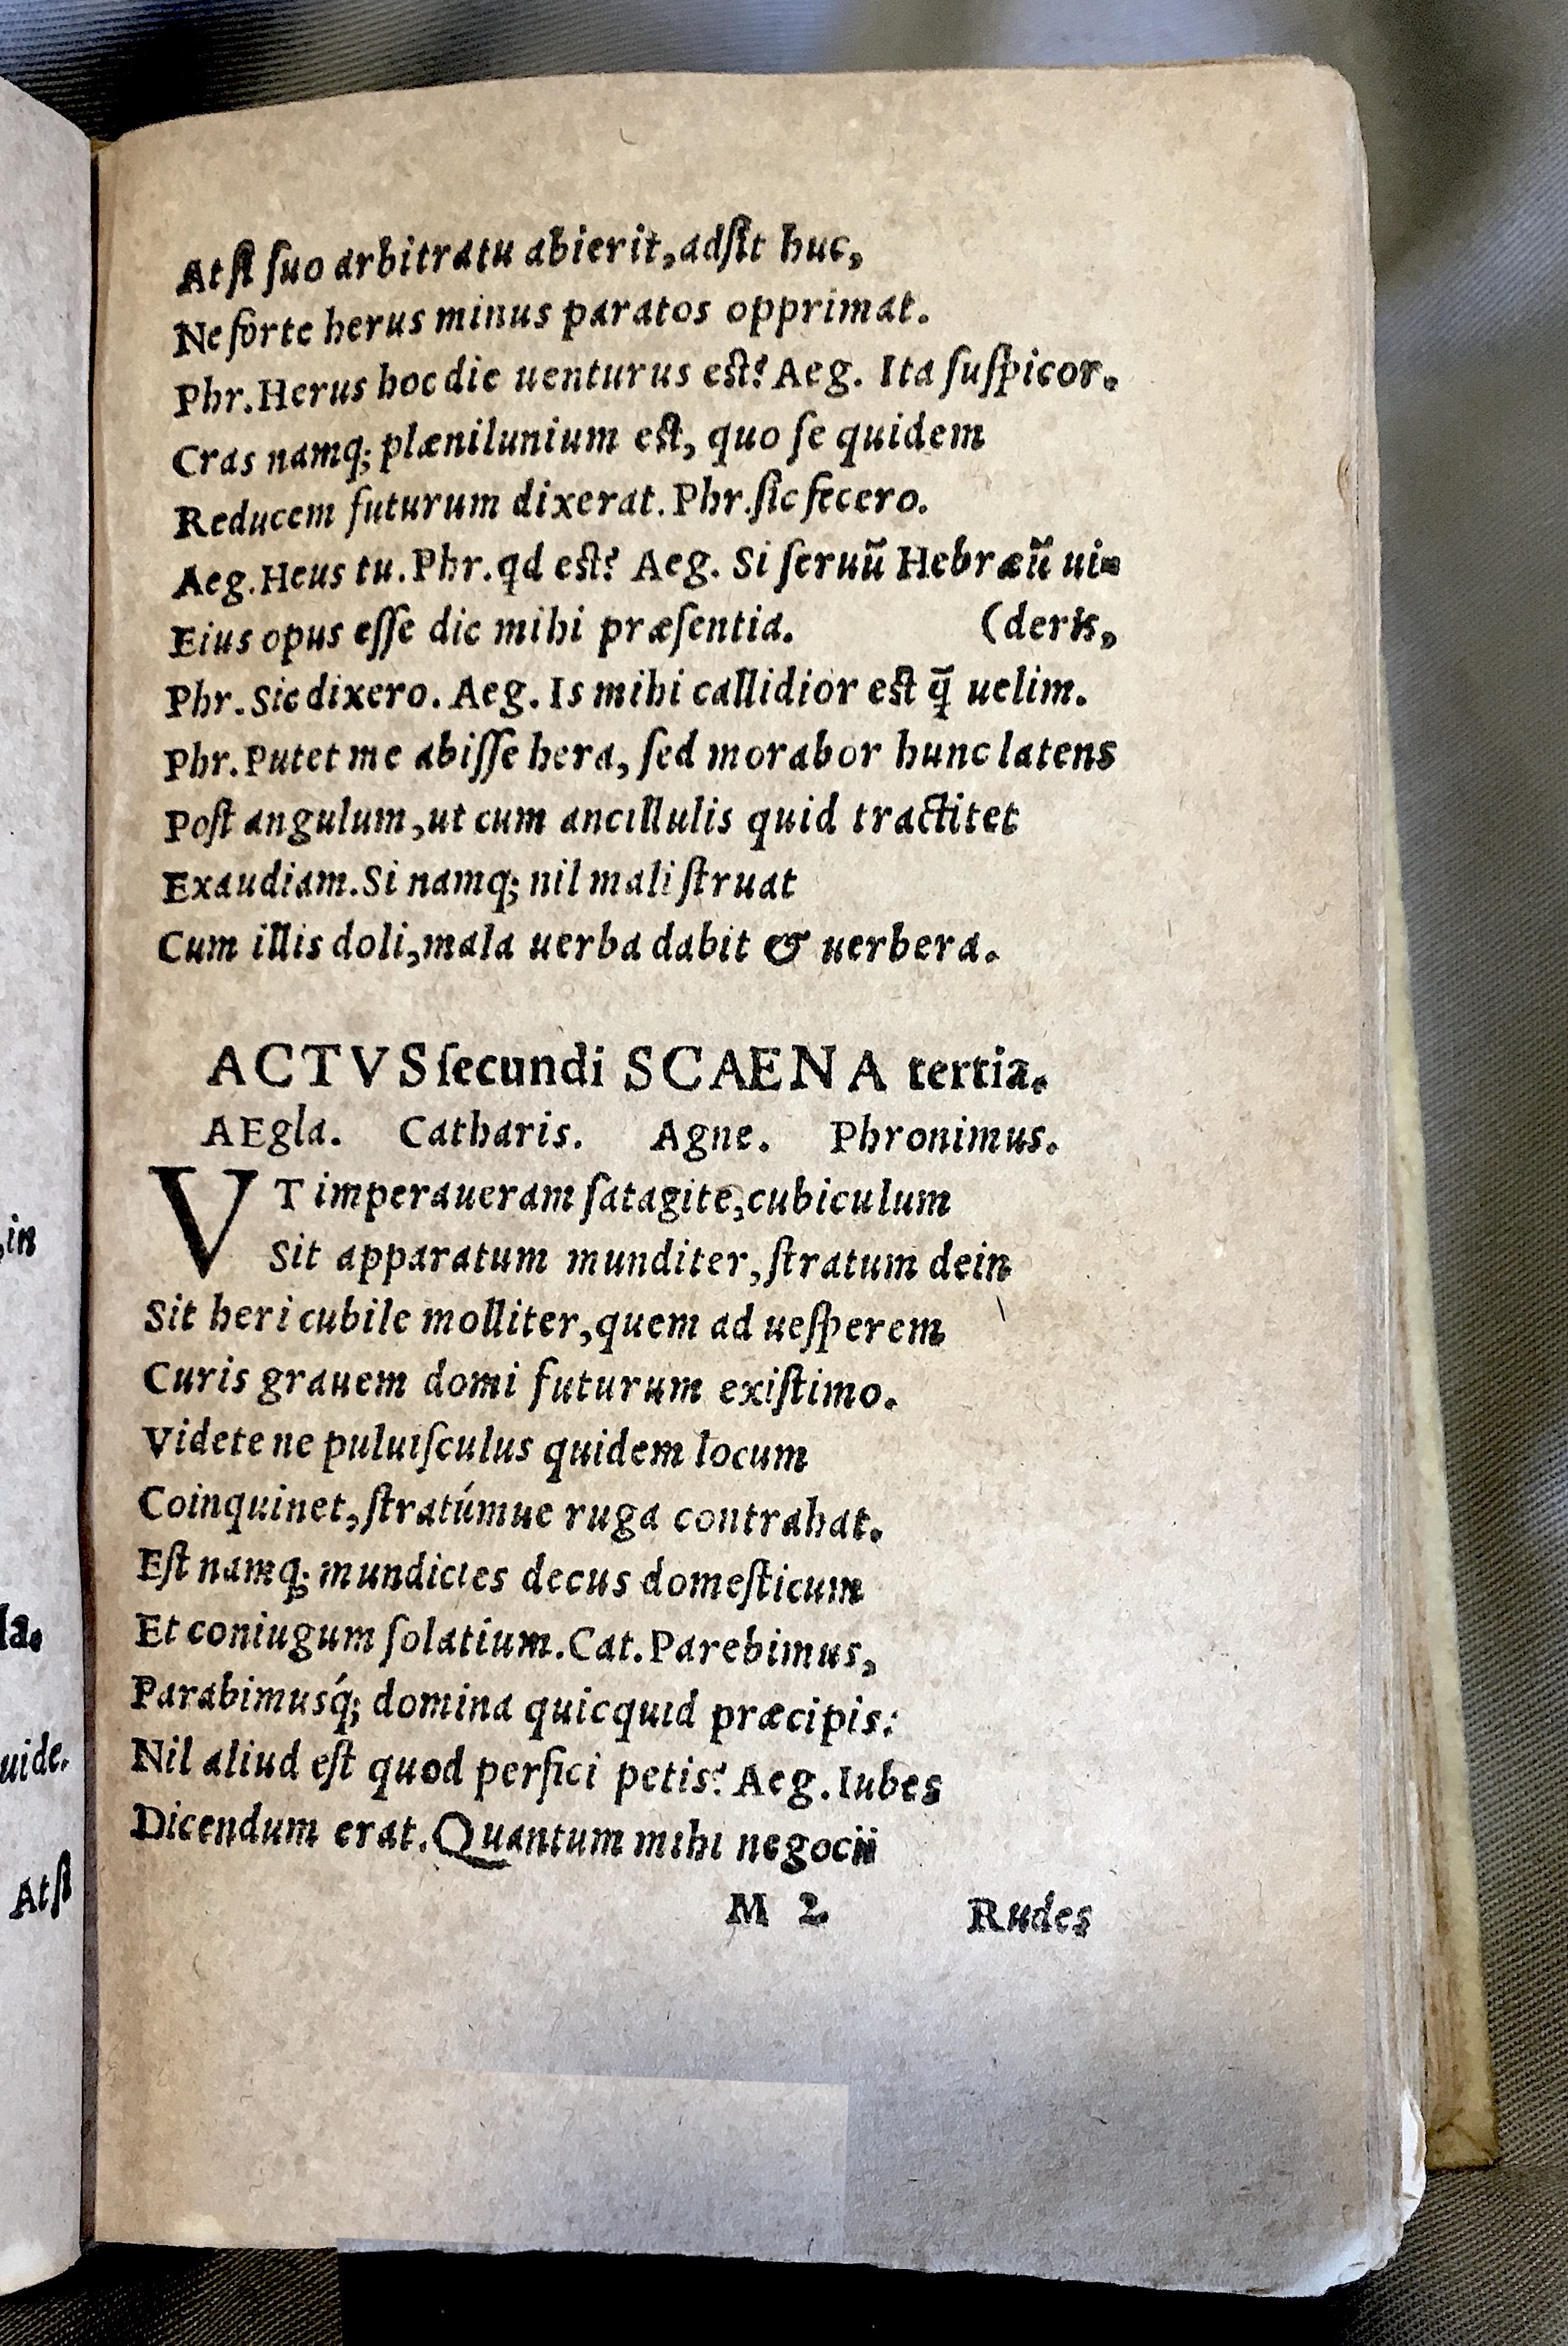 At ſi ſuo arbitratu abierit, adſit huc,
Ne forte herus minus paratos opprimat.
Phr. Herus hoc die uenturus eſt? Aeg. Ita ſuſpicor.
Cras namq; plænilunium eſt, quo ſe quidem
Reducem futurum dixerat. Phr. ſic fecero.
Aeg. Heus tu. Phr. qd eſt? Aeg. Si ſeruũ Hebræũ ui=
Eius opus eſſe dic mihi præſentia. (deris,
Phr. Sic dixero. Aeg. Is mihi callidior eſt q̃ uelim.
Phr. Putet me abiſſe hera, ſed morabor hunc latens
Poſt angulum, ut cum ancillulis quid tractitet
Exaudiam. Si namq; nil mali ſtruat
Cum illis doli, mala uerba dabit & uerbera.
ACTVS ſecundi SCAENA tertia.
AEgla. Catharis. Agne. Phronimus.
VT imperaueram ſatagite, cubiculum
Sit apparatum munditer, ſtratum dein
Sit heri cubile molliter, quem ad ueſperem
Curis grauem domi futurum exiſtimo.
Videte ne puluiſculus quidem locum
Coinquinet, ſtratúmue ruga contrahat.
Eſt namq; mundicies decus domeſticum
Et coniugum ſolatium. Cat. Parebimus,
Parabimusq́; domina quicquid præcipis:
Nil aliud eſt quod perfici petis? Aeg. Iubes
Dicendum erat. Quantum mihi negocii
M 2 Rudes
in
la.
uide.
At ſi